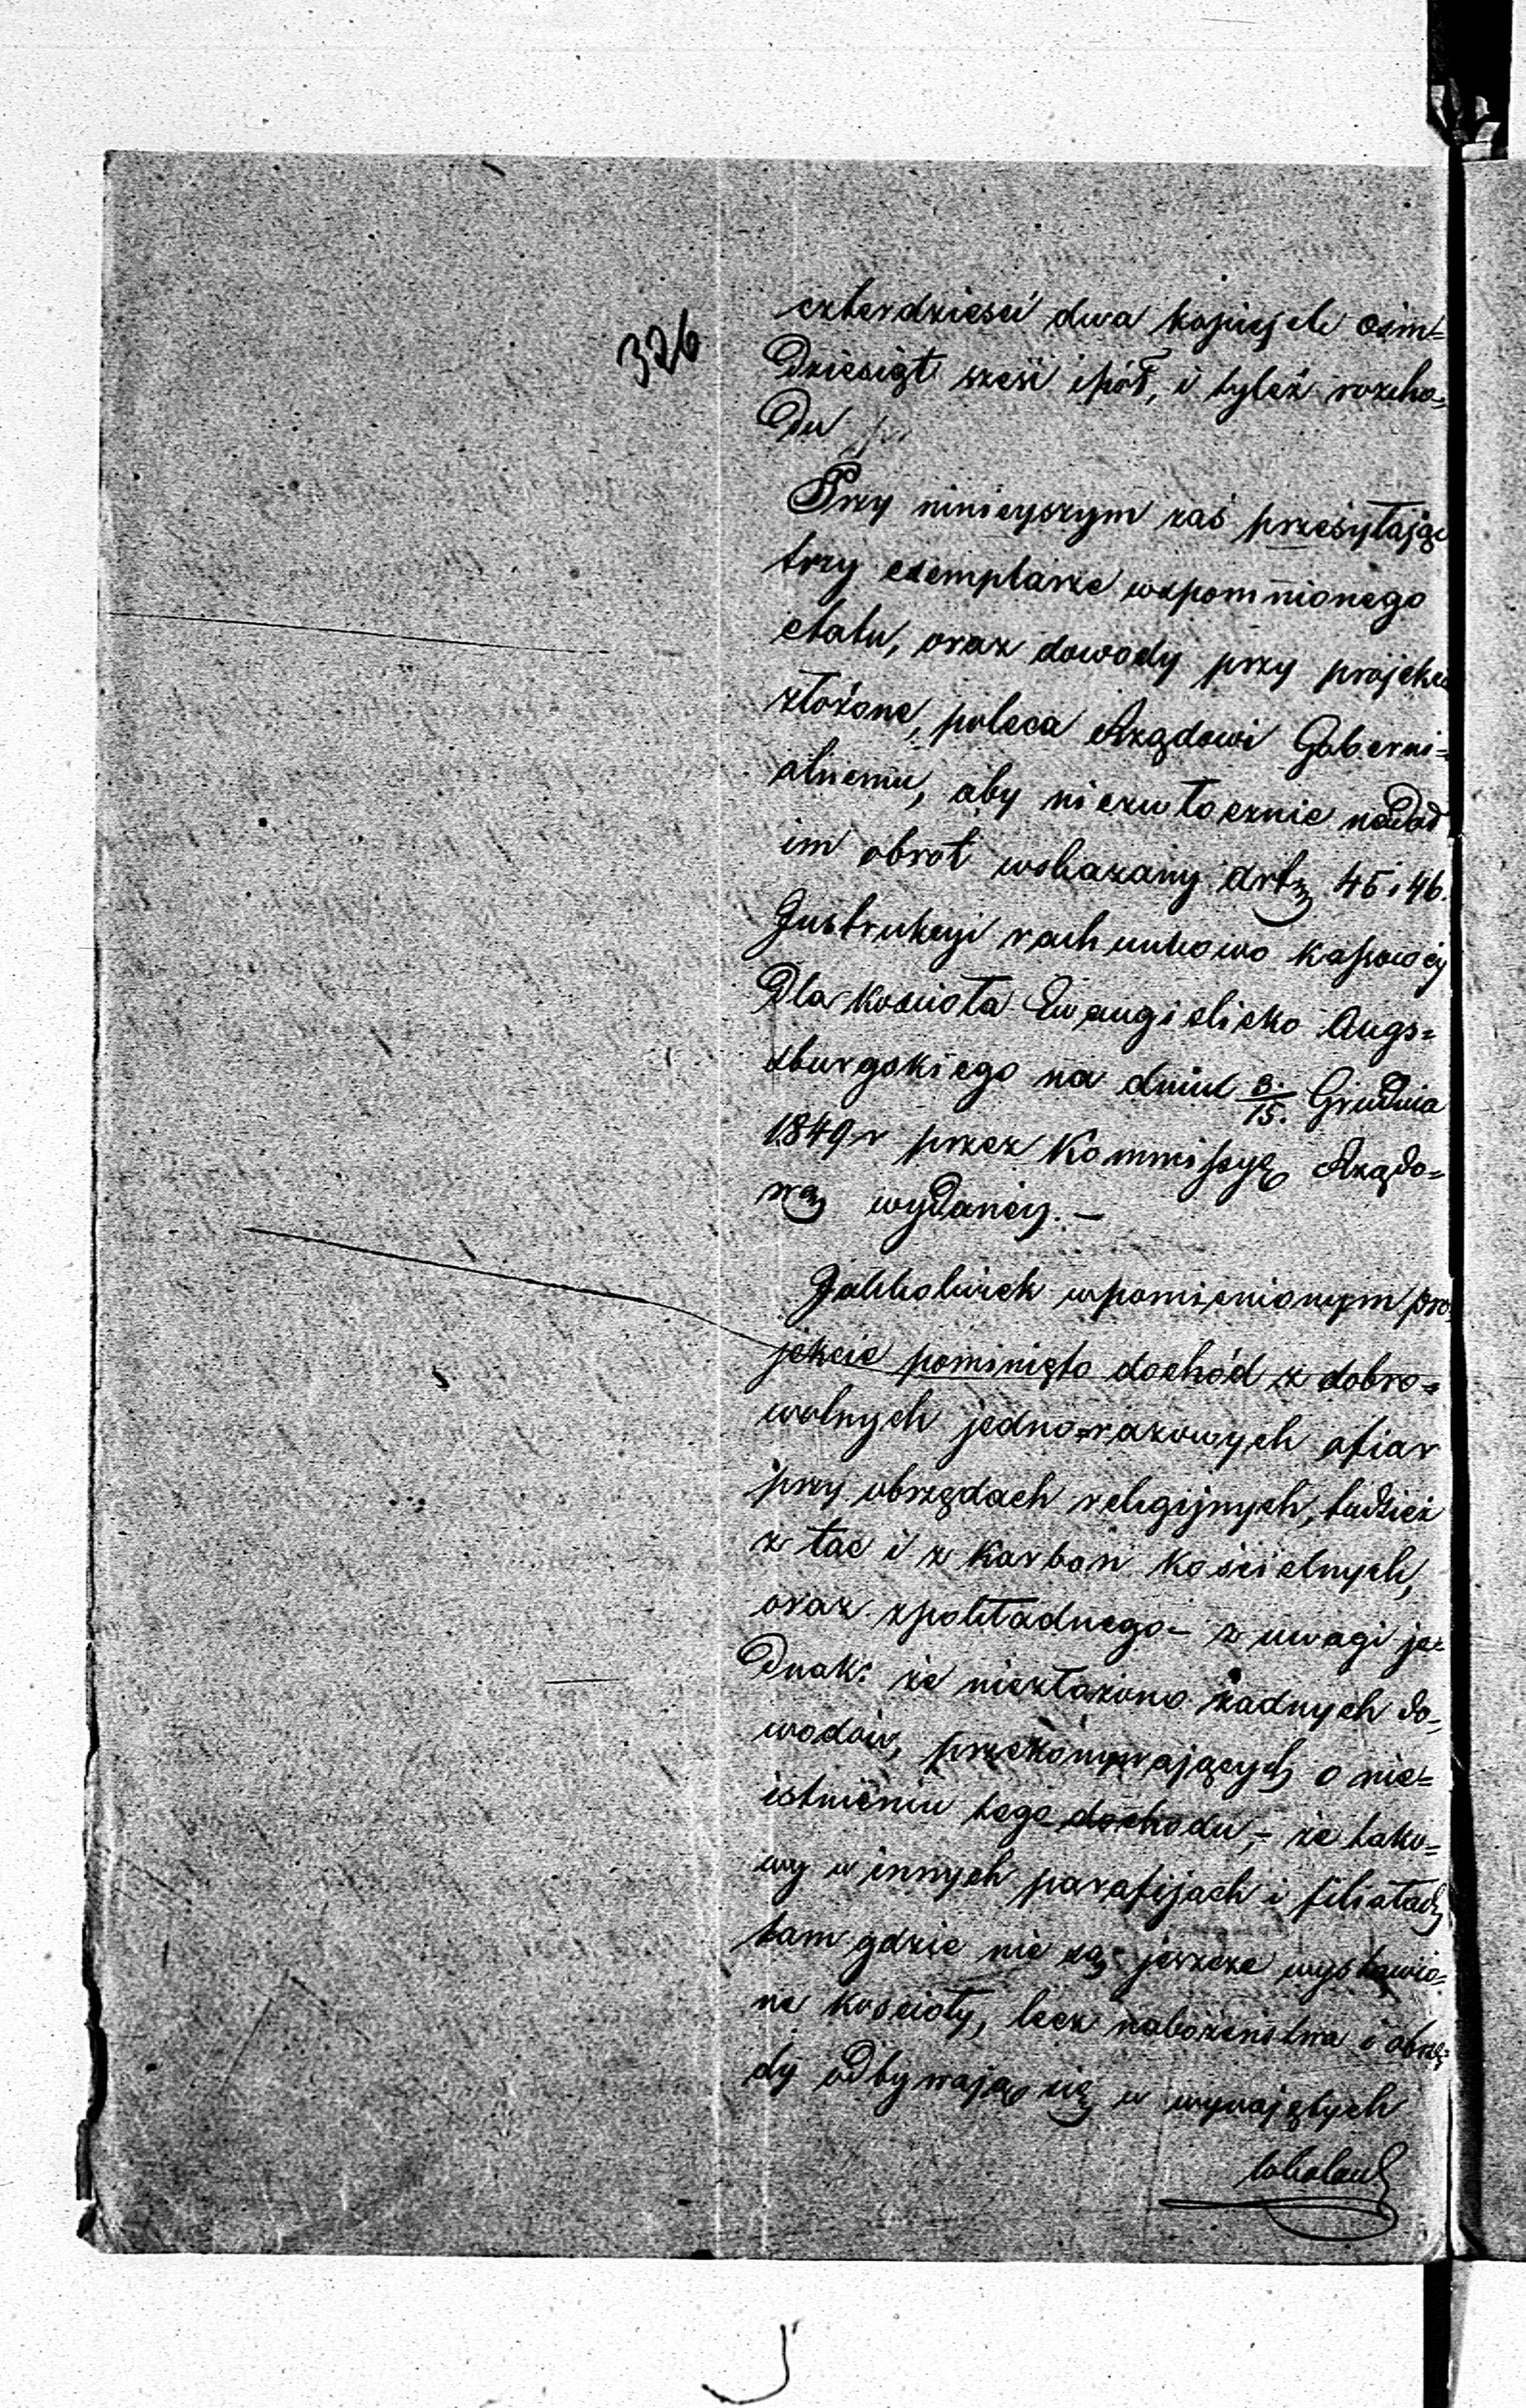 326
czterdzieści dwa kopiejek osim=
dziesiąt sześć i pół, i tyleż rozcho=
du
Przy ninieyszym zaś przesyłając
trzy exemplarze wspomnionego
etatu, oraz dowody przy projekcie
złożone, poleca Rządowi Guberni=
alnemu, aby niezwłocznie nadał
im obrot wskazany artą 45 i 46.
Instrukcyi rachunkowo kassowéj
dla kościoła Ewangielicko Augs=
burgskiego na dniu 3/15. Grudnia
1849 r przez Kommissyę Rządo=
wą wydanéj. –
Jakkolwiek w pomienionym pro
jekcie pominięto dochód z dobro=
wolnych jedno=razowych ofiar
przy obrzędach religijnych, tudzież
z tac i z karbon kościelnych,
oraz z pokładnego – z uwagi je=
dnak: że niezłożono żadnych do=
wodów, przekonywających o nie=
istnieniu tego dochodu, – że tako=
wy w innych parafijach i filiałach
tam gdzie nie są jeszcze wystawio=
ne kościoły, lecz nabożeństwa i obrzę
dy odbywają się w wynajętych
lokalach